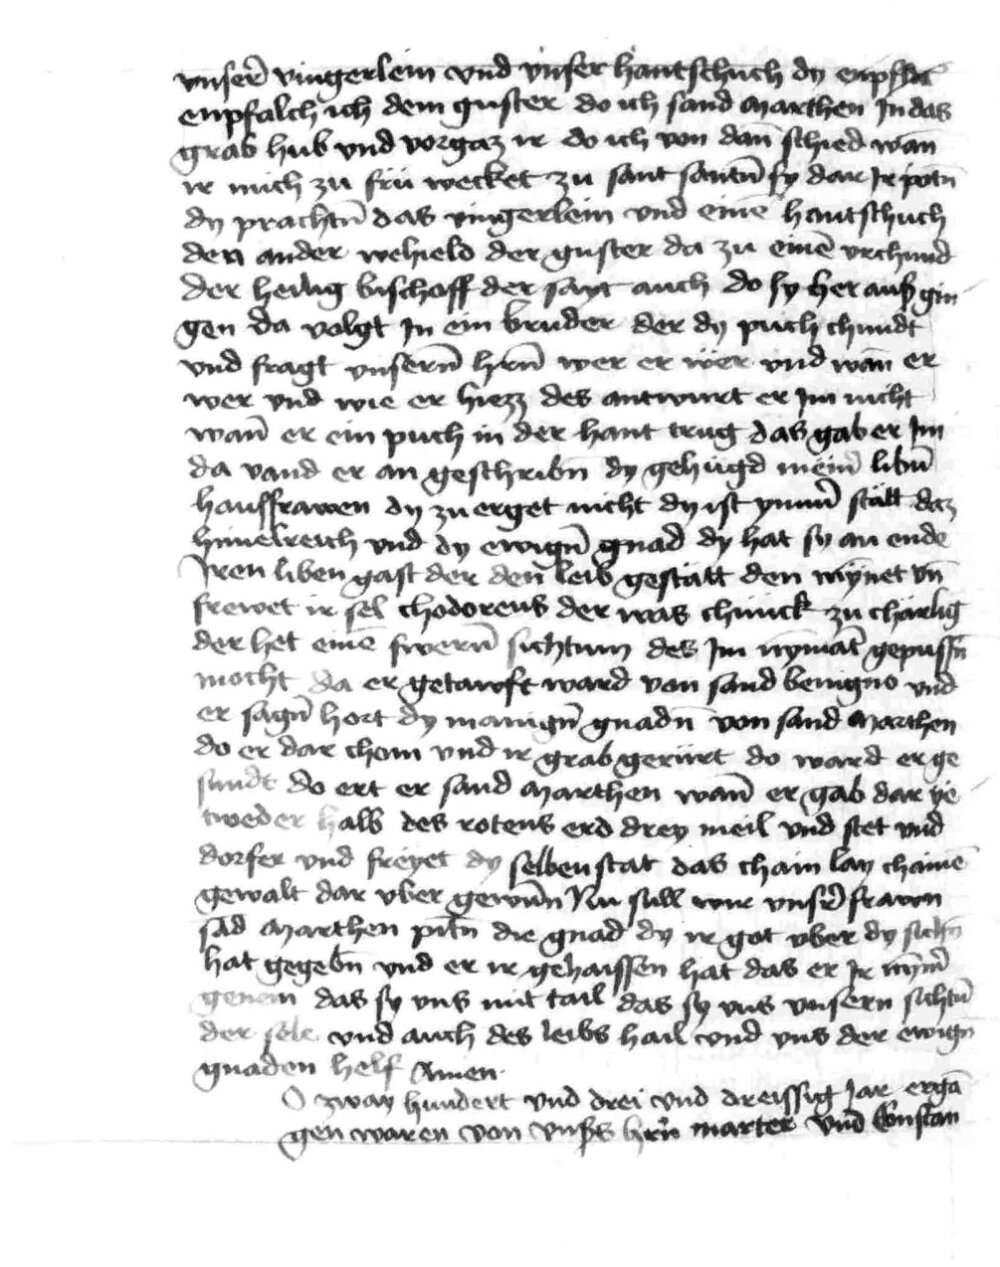 vnser̄ vingerlein vnd vnser hantschuch dy enpfilt
enpfalch ich dem guster do ich sand Marthen In das
grab hub vnd vorgaz ir do ich von dan̄ schied wan̄
ir mich zu frü wecket zu sant santn̄ sy dar Ir potn̄
dy prachtn̄ das vingerlein vnd einē hantschuch
den ander wehield der guster da zu einē vrchund
der heilig bischoff der sayt auch do sy her auß gin
gen da volgt In ein bruder der dy puch chundt
vnd fragt vnsern̄ hrn̄ wer er wer vnd wan̄ er
wer vnd wie er hiezz des antwurt er Im nicht
wan̄ er ein puch in der hant trug das gab er Im
da vand er an geschribn̄ dy gehügd mein̄ libn̄
hausfrawen dy zu erget nicht dy ist ymm̄ stätt daz
himelreich vnd dy ewign̄ gnad dy hat sy an ende
Iren liben gast der den̄ leib gestätt den mynet vn̄
frewet ir sel chodoreus der was chünck zu chärlig
der het einē swern̄ sichtum des Im nymāt gepussn̄
mocht da er getawft ward von sand benigno vnd
er sagn̄ hort dy manign̄ gnadn̄ von sand Marthen
do er dar chom vnd ir grab gerürt do ward er ge
sundt do ert er sand Marthen wan̄ er gab dar ye
tweder halb des rotens erd drey meil vnd stet vnd
dorfer vnd freyet dy selben stat das chain lay chainē
gewalt dar vber gewun̄ Nu sull wir vnser̄ frawn
sād Marthen pitn̄ die gnad dy ir got vber dy sichn̄
hat gegebn̄ vnd er ir gehaissen hat das er Ir nym̄
genem das sy vns mit tail das sy vns vnsern sichtū
der sele vnd auch des leibs hail vnd vns der ewign̄
gnaden helf Amen
O zway hundert vnd drei vnd dreissig Jar ergā
gen waren von vnßs hrn̄ marter vnd Constan